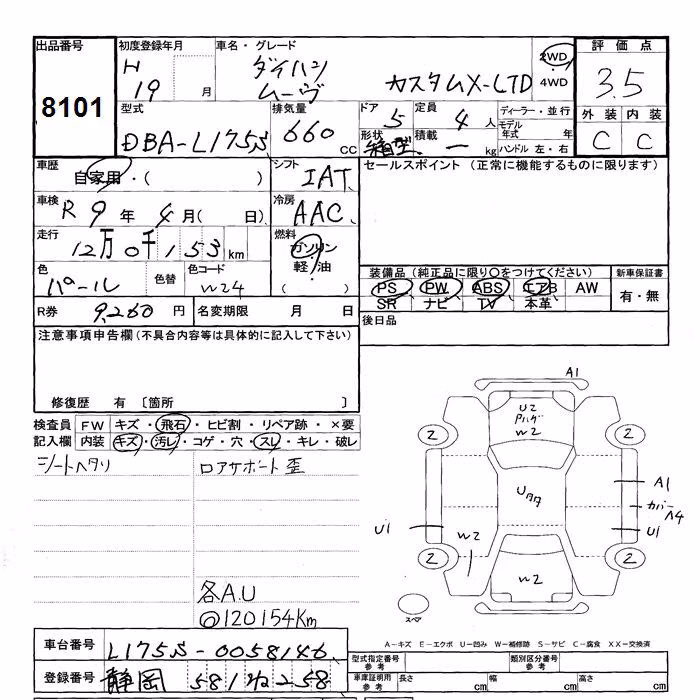 出品番号
8101
初度登録年月
H 19 月
車名・グレード
ダイハツ
ムーヴ
カスタムX-LTD
2WD
4WD
評価点
3.5
外装 内装
C C
型式
DBA-L175S
排気量
660 CC
ドア
5
定員
4 人
形状
箱型
積載
ー kg
ディーラー・並行
モデル
年式 年
ハンドル 左・右
車歴
自家用・( )
シフト
IAT
セールスポイント (正常に機能するものに限ります)
車検
R 9 年 4 月( 日)
冷房
AAC
走行
12万0千153km
燃料
ガソリン
軽・油
( )
色
パール
色替
色コード
W24
装備品 (純正品に限り○をつけてください)
PS PW ABS エアB AW
SR ナビ TV 本革
新車保証書
有・無
R券 9,260 円
名変期限 月 日
後日品
注意事項申告欄 (不具合内容等は具体的に記入して下さい)
修復歴 有 〔箇所 〕
検査員 FW キズ・飛石・ヒビ割・リペア跡・×要
記入欄 内装 キズ・汚レ・コゲ・穴・スレ・キレ・破レ
シートヘタリ
ロアサポート歪
各A.U
◎120154Km
A1
U2
W2
2 2
Uタタ
A1
カバー
A4
U1
U1
W2
2 2
W2
スペア
A－キズ E－エクボ U－凹み W－補修跡 S－サビ C－腐食 XX－交換済
車台番号
L175S-0058146
登録番号
静岡 581 2258
型式指定番号
参考
類別区分番号
参考
車庫証明用
参考
長さ cm
幅 cm
高さ cm